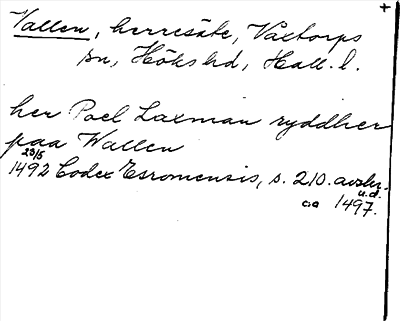 +
Vallen, herresäte, Vaxtorps
sn, Höks hd, Hall. l.
her Poel Laxman ryddher
paa Wallen
23/5
1492 Codex Esromensis, s. 210. avskr.
u.d.
ca 1497.